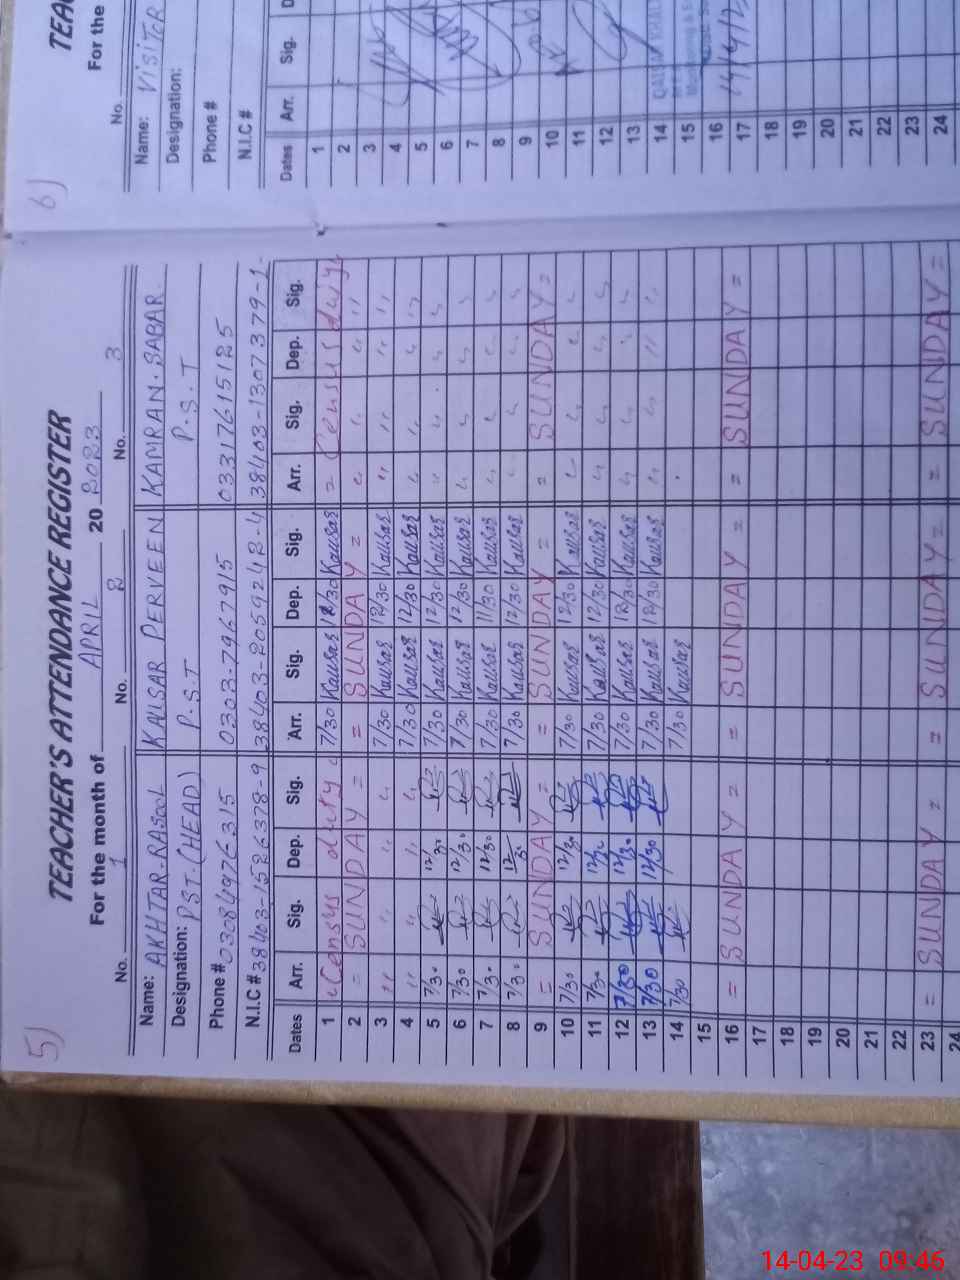 5)
TEACHER'S ATTENDANCE REGISTER
For the month of APRIL 20 2023
No. 1 No. 2 No. 3
Name: AKHTAR RASOOL KAUSAR PERVEEN KAMRAN. BABAR.
Designation: PST. (HEAD) P.S.T P.S.T
Phone # 03084976315 0303-7967915 03317615125
N.I.C # 38403-1526378-9 38403-2059242-4 38403-1307379-1
Dates Arr. Sig. Dep. Sig. Arr. Sig. Dep. Sig. Arr. Sig. Dep. Sig.
1 Census duty 7/30 Kausar 12/30 Kausar = Census duty
2 = SUNDAY = = SUNDAY = " " " "
3 " " " " 7/30 Kausar 12/30 Kausar " " " "
4 " " " " 7/30 Kausar 12/30 Kausar " " " "
5 7/30 12/30 7/30 Kausar 12/30 Kausar " " " "
6 7/30 12/30 7/30 Kausar 12/30 Kausar " " " "
7 7/30 12/30 7/30 Kausar 11/30 Kausar " " " "
8 7/30 12/30 7/30 Kausar 12/30 Kausar " " " "
9 = SUNDAY = = SUNDAY = = SUNDAY =
10 7/30 12/30 7/30 Kausar 12/30 Kausar " " " "
11 7/30 12/30 7/30 Kausar 12/30 Kausar " " " "
12 7/30 12/30 7/30 Kausar 12/30 Kausar " " " "
13 7/30 12/30 7/30 Kausar 12/30 Kausar " " " "
14 7/30 7/30 Kausar
15
16 = SUNDAY = = SUNDAY = = SUNDAY =
17
18
19
20
21
22
23 = SUNDAY = = SUNDAY = = SUNDAY =
24
6)
TEA
For the
No.
Name: VISITER
Designation:
Phone #
N.I.C #
Dates Arr. Sig. D
1
2
3
4
5
6
7
8
9
10
11
12
13
14
15
16
17
18
19
20
21
22
23
24
14-04-23 09:46